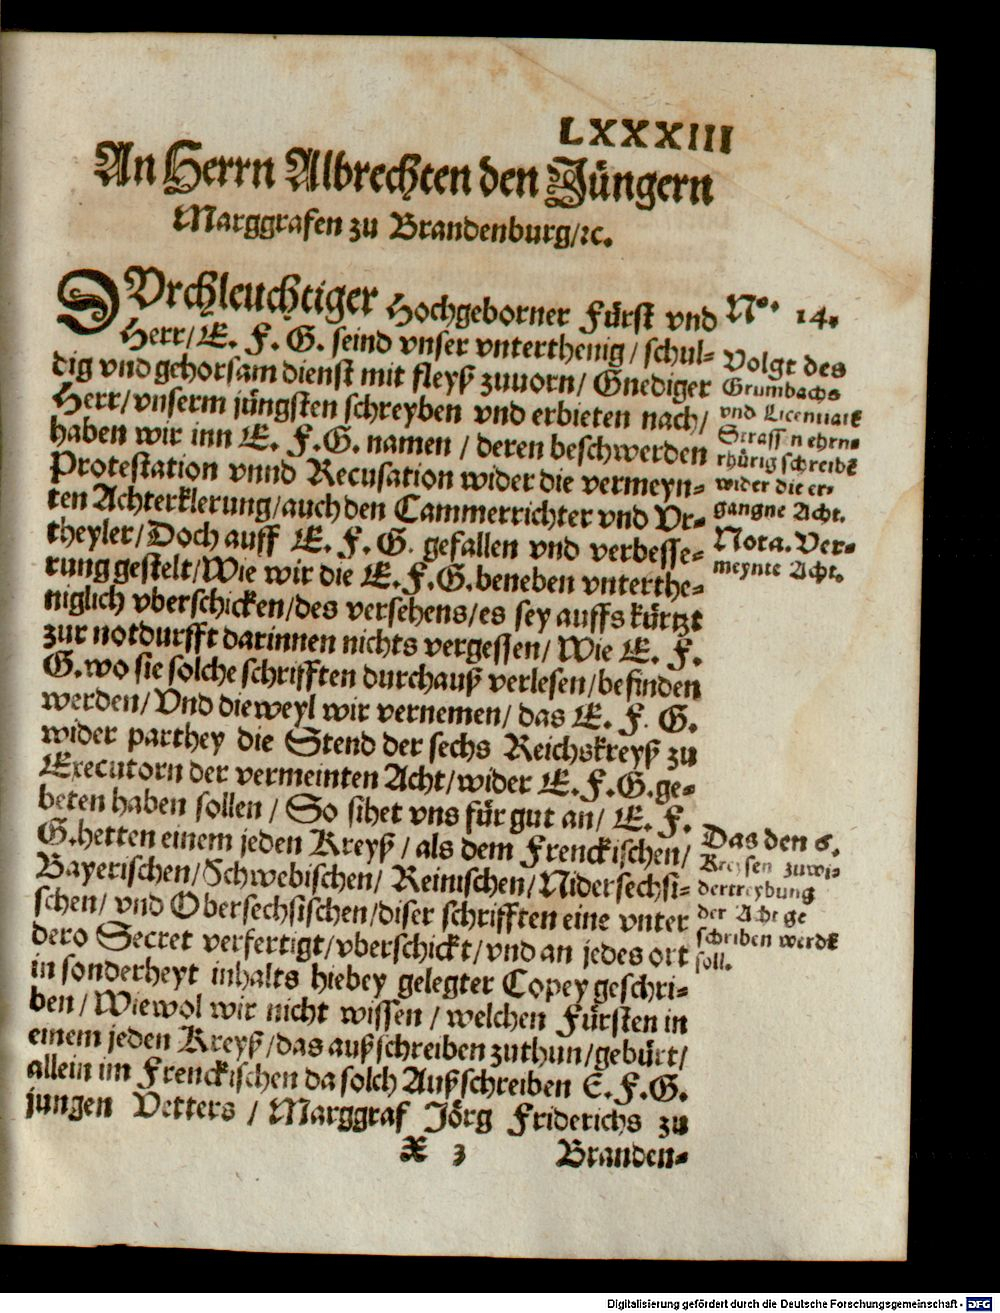 LXXXIII
An Herrn Albrechten den Jüngern
Marggrafen zu Brandenburg/ꝛc.
DVrchleuchtiger Hochgeborner Fürst vnd
Herr/E. F. G. seind vnser vnterthenig / schul⸗
dig vnd gehorsam dienst mit fleyß zuuorn/ Gnediger
Herr/vnserm jüngsten schreyben vnd erbieten nach/
haben wir inn E. F.G. namen / deren beschwerden
Protestation vnnd Recusation wider die vermeyn⸗
ten Achterklerung/auch den Cammerrichter vnd Vr⸗
theyler/Doch auff E. F. G. gefallen vnd verbesse⸗
rung gestelt/Wie wir die E.F.G.beneben vnterthe⸗
niglich vberschicken/des versehens/es sey auffs kürtzt
zur notdurfft darinnen nichts vergessen/ Wie E. F.
G.wo sie solche schrifften durchauß verlesen/befinden
werden/ Vnd dieweyl wir vernemen/ das E. F. G.
wider parthey die Stend der sechs Reichskreyß zu
Executorn der vermeinten Acht/wider E.F.G.ge⸗
beten haben sollen / So sihet vns für gut an/ E. F.
G.hetten einem jeden Kreyß / als dem Frenckischen/
Bayerischen/Schwebischen/ Reinischen/Nidersechsi⸗
schen/ vnd Obersechsischen/diser schrifften eine vnter
dero Secret verfertigt/vberschickt/vnd an jedes ort
in sonderheyt inhalts hiebey gelegter Copey geschri⸗
ben / Wiewol wir nicht wissen / welchen Fürsten in
einem jeden Kreyß/das außschreiben zuthun/gebürt/
allein im Frenckischen da solch Außschreiben E.F.G.
jungen Vetters / Marggraf Jörg Friderichs zu
X 3 Branden⸗
No. 14.
Volgt des
Grumbachs
vnd Licentiatē
Strassen ehrn⸗
rhürig schreibē
wider die er⸗
gangne Acht.
Nota. Ver⸗
meynte Acht.
Das den 6.
Kreysen zuwi⸗
dertreybung
der Acht ge
schriben werdē
soll.
Digitalisierung gefördert durch die Deutsche Forschungsgemeinschaft - DFG